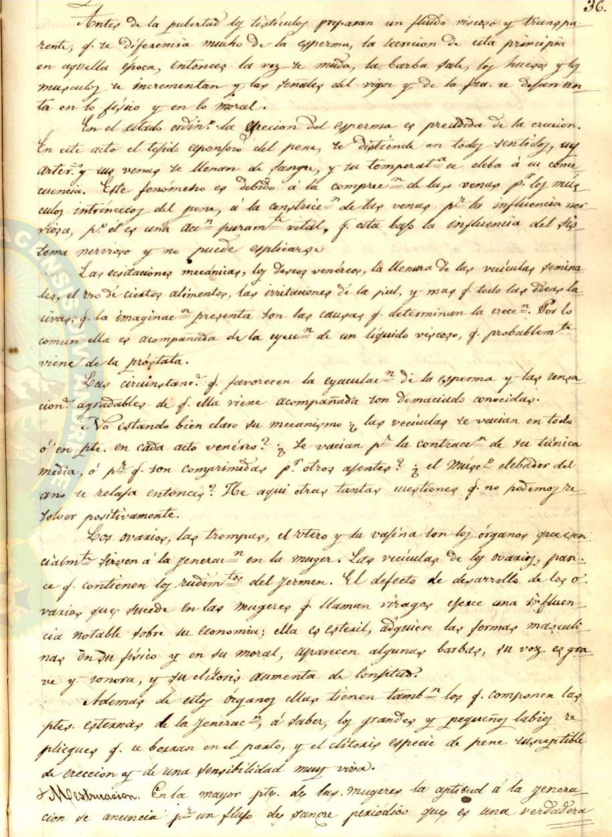 36.
Antes de la pubertad los testículos preparan un fluido viscoso y transpa
rente, q. se diferencia mucho de la esperma, la secrecion de esta principia
en aquella época, entonces la voz se muda, la barba sale, los huesos y los
musculos se incrementan y las señales del vigor y de la fza. se
ta en lo fisico y en lo moral.
En el estado ordino. la eyecion del esperma es precidida de la ereccion.
En este acto el tejido esponjoso del pene, se distiende en todos sentidos, sus
arters. y sus venas se llenan de sangre, y su temperata. se eleba á su conse
cuencia. Este fenomeno es debido á la compreon. de las venas pr. los mús
culos intrínsecos del pene, á la constriccn. de las venas pr. la influencia ner
viosa, pr. q. es una accn. puramte. vital, q. esta bajo la influencia del sis
tema nervioso y no puede esplicarse
Las ecsitaciones mecánicas, los deseos venéreos, la llenura de las vecículas semina
les, el uso de ciertos alimentos, las irritaciones de la piel, y mas q. todo las ideas la
civas, q. la imaginacn. presenta son las causas q. determinan la ereccn. Por lo
comun ella es acompañada de la eyeccn. de un líquido viscoso, q. probablemte.
viene de la próstata.
Las circunstans. q. favorecen la eyaculacn. de la esperma y las sensa
cions. agradables de q. ella viene acompañada son demaciado conocidas.
No estando bien claro su mecanismo ¿ las vecículas se vacian en todo
ó en pte. en cada acto venéreo? ¿ Se vacian pr. la contraccn. de su túnica
media, ó pr. q. son comprimidas pr. otros ajentes? ¿ el músco. elebador del
ano se relaja entonces? He aqui otras tantas cuestiones q. no podemos re
solver positivamente.
Los ovarios, las trompas, el útero y la vajina son los órganos que esen
cialmte. sirven á la jeneracn. en la muger. Las vecículas de los ovarios, pare
ce q. contienen los rudimtos. del jermen. El defecto de desarrollo de los o
varios que sucede en las mugeres q. llaman viragos ejerce una influen
cia notable sobre su economia; ella es esteril, adquiere las formas masculi
nas en su fisico y en su moral, aparecen algunas barbas, su voz es gra
ve y sonora, y su clítoris aumenta de lonjitud.
Ademas de estos órganos ellas tienen tambn. los q. componen las
ptes. esternas de la jeneracn. á saber, los grandes y pequeños labios re
pliegues q. se borran en el parto, y el clítoris especie de pene susceptible
de ereccion y de una sensibilidad muy viva.
Mestruacion. En la mayor pte. de las mugeres la aptitud á la jenera
cion se anuncia pr. un flujo de sangre periodico que es una verdadera